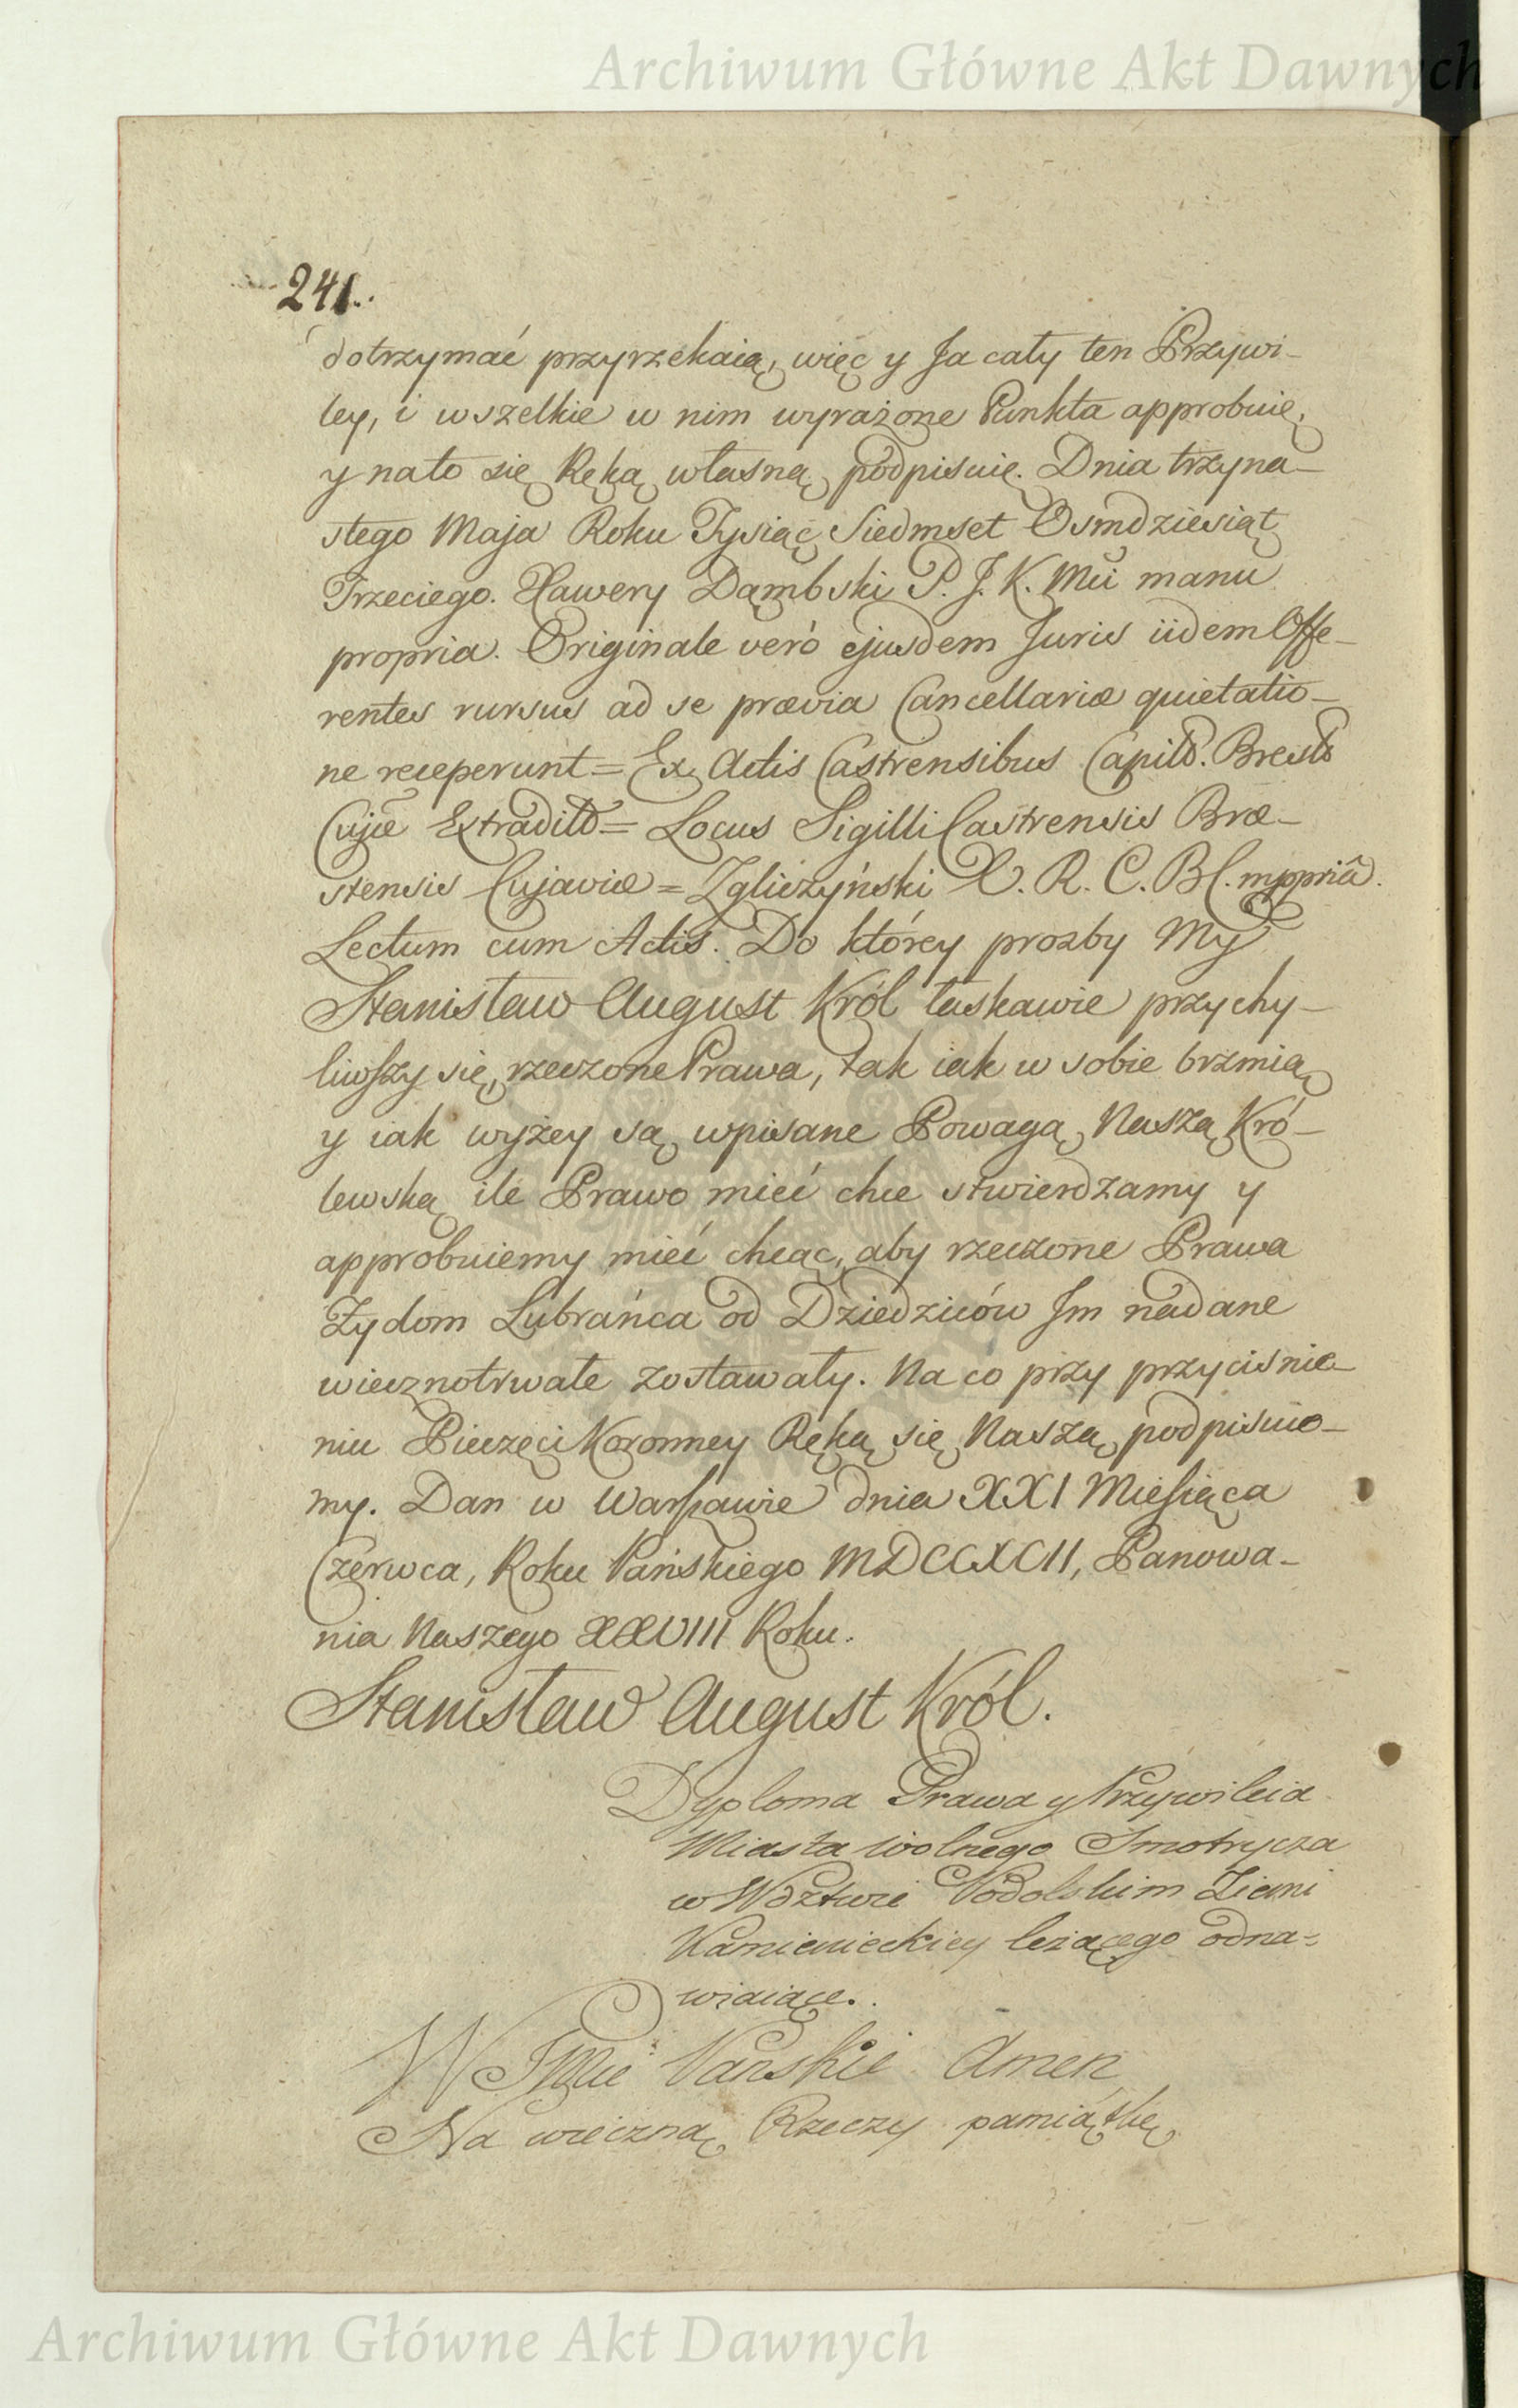 Archiwum Główne Akt Dawnych
241.
dotrzymać przyrzekaią, więc y Ja cały ten Przywi-
ley, i wszelkie w nim wyrażone Punkta approbuię,
y nato się Ręką własną podpisuię. Dnia trzyna-
stego Maja Roku Tysiąc Siedmset Osmdziesiąt
Trzeciego. Xawery Dąmbski P. J. K. Mći manu
propria. Originale veró ejusdem Juris iidem Offe-
rentes rursus ad se prævia Cancellariæ quietatio-
ne receperunt = Ex Actis Castrensibus Capitł. Brest
Cujæ Extradit = Locus Sigilli Castrensis Bræ-
stensis Cujaviæ = Zgliczyński V. R. C. B C. mppriâ.
Lectum cum Actis. Do którey prozby My
Stanisław August Król łaskawie przychy-
liwszy się, rzeczone Prawa, tak iak w sobie brzmią
y iak wyżey są wpisane Powagą Naszą Kró-
lewską ile Prawo mieć chce stwierdzamy y
approbuiemy mieć chcąc, aby rzeczone Prawa
Żydom Lubrańca od Dziedziców Jm nadane
wiecznotrwałe zostawały. Na co przy przyciśnie-
niu Pieczęci Koronney Ręką się Naszą podpisuie-
my. Dan w Warszawie dnia XXI Miesiąca
Czerwca, Roku Pańskiego MDCCXCII, Panowa-
nia Naszego XXVIII Roku.
Stanisław August Król.
Dyploma Prawa y Przywileia
Miasta wolnego Smotrycza
w Wdztwie Podolskim Ziemi
Kamienieckiey leżącego odna-
wiaiące.
W Imie Pańskie Amen
Na wieczną Rzeczy pamiątkę
Archiwum Główne Akt Dawnych